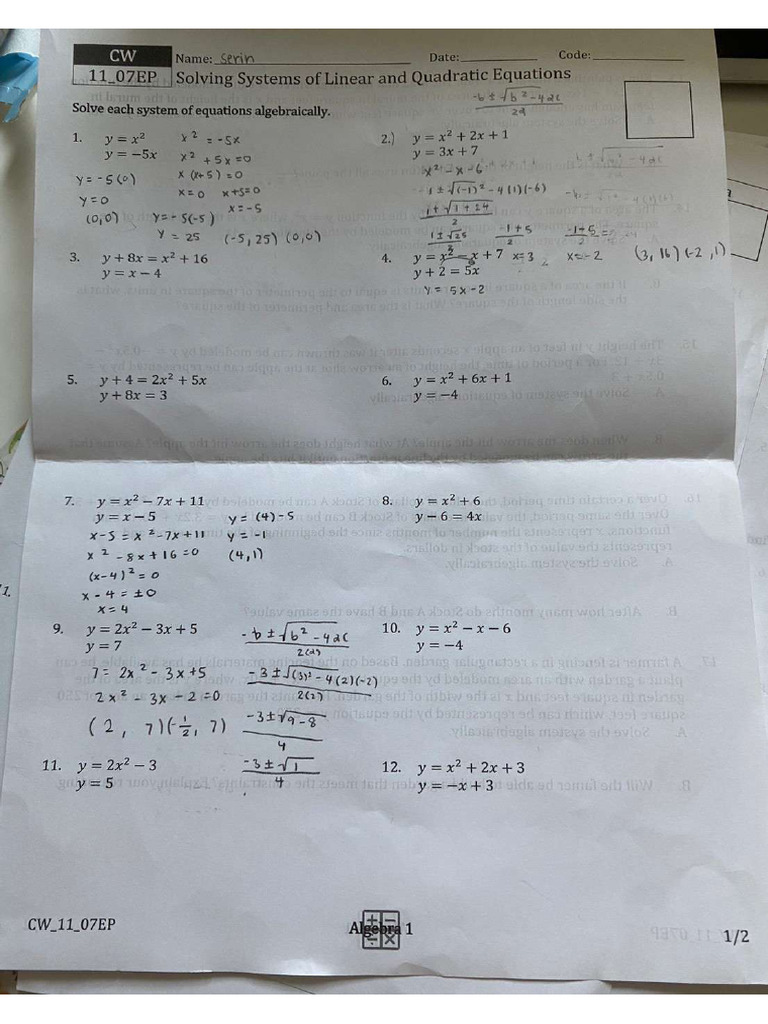 CW Name: Serin Date: Code:
11_07EP Solving Systems of Linear and Quadratic Equations
-b ± √b² - 4ac
2a
Solve each system of equations algebraically.
1. y = x²
y = −5x
x² = -5x
x² + 5x = 0
x (x+5) = 0
x = 0 x+5 = 0
x = -5
y = -5(0)
y = 0
(0,0)
y = -5(-5)
y = 25 (-5, 25) (0,0)
2.) y = x² + 2x + 1
y = 3x + 7
x² - x - 6
1 ± √(-1)² - 4(1)(-6)
1 ± √1 + 24
2
1 ± √25
2
-1 + 5
2
-1 + 5
2
x = 3 x = -2 (3, 16) (-2, 1)
3. y + 8x = x² + 16
y = x − 4
4. y = x² − x + 7
y + 2 = 5x
y = 5x - 2
5. y + 4 = 2x² + 5x
y + 8x = 3
6. y = x² + 6x + 1
y = −4
7. y = x² − 7x + 11
y = x − 5
x - 5 = x² - 7x + 11
x² - 8x + 16 = 0
(x-4)² = 0
x - 4 = ± 0
x = 4
y = (4) - 5
y = -1
(4,1)
8. y = x² + 6
y − 6 = 4x
9. y = 2x² − 3x + 5
y = 7
7 = 2x² - 3x + 5
2x² - 3x - 2 = 0
(2, 7)(-1/2, 7)
-b ± √b² - 4ac
2(a)
-3 ± √(3)² - 4(2)(-2)
2(2)
-3 ± √9 - 8
4
-3 ± √1
4
10. y = x² − x − 6
y = −4
11. y = 2x² − 3
y = 5
12. y = x² + 2x + 3
y = −x + 3
CW_11_07EP Algebra 1 1/2